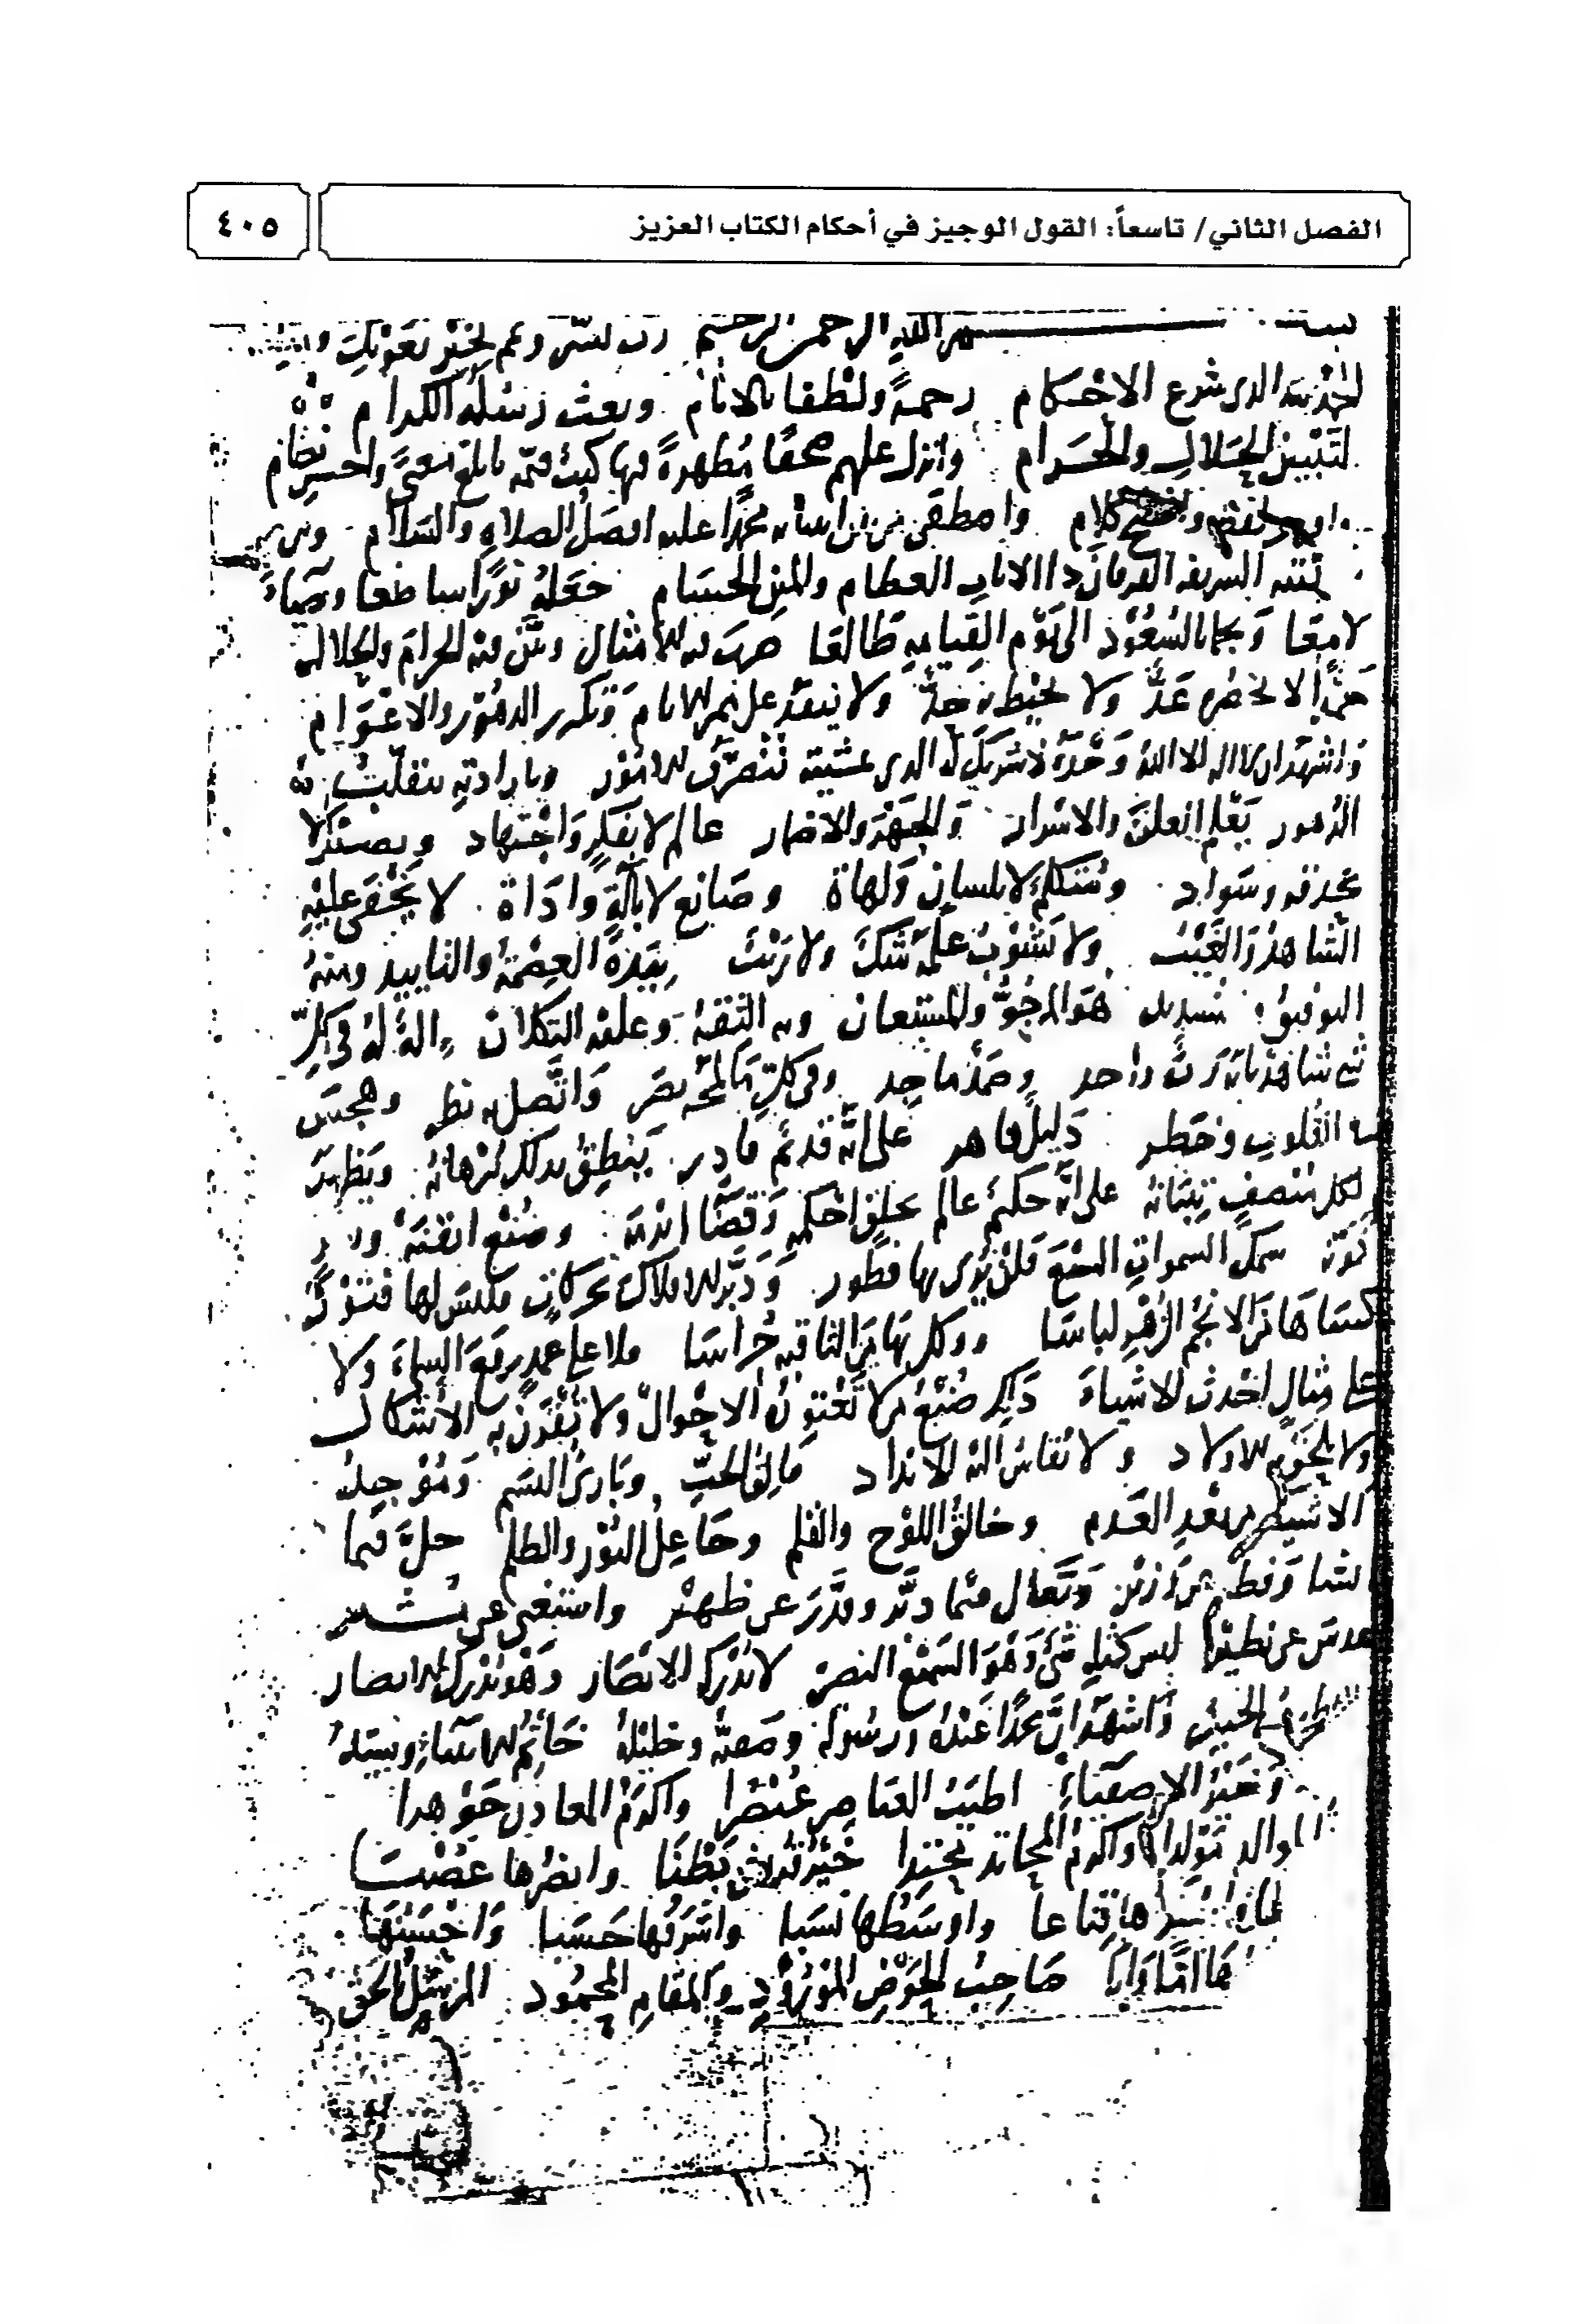 الفصل الثاني/ تاسعاً: القول الوجيز في أحكام الكتاب العزيز
٤٠٥
بسم الله الرحمن الرحيم رب يسر وعم بخير بعونك
الحمد لله الذي شرع الاحكام رحمة ولطفا بالانام وبعث رسله الكرام
لتبيين الحلال والحرام وانزل عليهم صحفا مطهرة فيها كتب قيمة بابلغ معنى واحسن نظام
كلام واصطفى من بين انبيائه محمدا عليه افضل الصلاة والسلام
الشريفة القرآن ذا الايات العظام والمنن الجسام جعله نورا ساطعا وضياء
لامعا ونجما بالسعود الى يوم القيامة طالعا ضرب فيه الامثال وبين فيه الحرام والحلال
لا يحصره عد ولا يحيط به حد ولا ينفد على ممر الايام وتكرر الدهور والاعوام
واشهد ان لا اله الا الله وحده لا شريك له الذي بمشيته تتصرف الامور وبارادته تتقلب
الدهور يعلم العلن والاسرار والجهر والاضمار عالم لا بفكر واجتهاد وبصير لا
بحدقة وسواد ومتكلم لا بلسان ولهاة وصانع لا بآلة واداة لا يخفى عليه
الشاهد والغيب ولا يشوب علمه شك ولا ريب بيده العصمة والتاييد ومنه
التوفيق هو المرجو والمستعان وبه الثقة وعليه التكلان اله له في كل
شيء شاهد بانه رب واحد وصمد ماجد وفي كل ما لمحه بصر واتصل به نظر وهجس
القلوب وخطر دليل قاهر على انه قديم قادر ينطق بذلك برهانه ويظهر
لكل منصف تبيانه على انه حكيم عالم بخلق احكمه وقضا ابرمه وصنع اتقنه
سمك السموات السبع فلن يرى بها فطور ودبر الافلاك بحركات فليس لها فتور
كساها من الانجم الزهر لباسا ووكل بها من الثاقبة حراسا فلا على عمد رفع السماء ولا
على مثال احدث الاشياء ذلك صنع من لا تعتوره الاحوال ولا تقترن به الاشكال
ولا يحويه الاولاد ولا تقاس اليه الانداد فالق الحب وبارئ النسم وموجد
الاشياء من بعد العدم وخالق اللوح والقلم وجاعل النور والظلم جل فيما
وتعالى فيما دبر وقدر عن ظهير واستغنى عن
ليس كمثله شيء وهو السميع البصير لا تدركه الابصار وهو يدرك الابصار
واشهد ان محمدا عبده ورسوله وصفيه وخليله خاتم الانبياء وسيد
وخير الاصفياء اطيب العناصر عنصرا واكرم المعادن جوهرا
واكرم المحاتد محتدا بطنا
قناعا واوسطها نسبا واشرفها حسبا واحسنها
اما وابا صاحب الحوض المورود والمقام المحمود المرسل بالحق